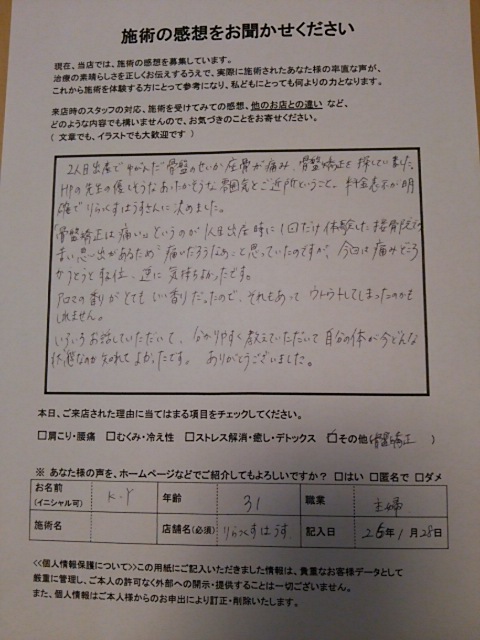 施術の感想をお聞かせください
現在、当店では、施術の感想を募集しています。
治療の素晴らしさを正しくお伝えするうえで、実際に施術されたあなた様の率直な声が、
これから施術を体験する方にとって参考になり、私どもにとっても何よりの力となります。
来店時のスタッフの対応、施術を受けてみての感想、他のお店との違い など、
どのような内容でも構いませんので、お気づきのことをお寄せください。
( 文章でも、イラストでも大歓迎です )
2人目出産でゆがんだ骨盤のせいか座骨が痛み、骨盤矯正を探していました。
HPの先生の優しそうなあたたかそうな雰囲気とご近所ということ、料金表示が明
確でりらっくすはうすさんに決めました。
「骨盤矯正は痛い」というのが1人目出産時に1回だけ体験した接骨院での
思い出があるため、痛いだろうなあと思っていたのですが、今回は痛みどころ
かうとうとする位、逆に気持ちよかったです。
アロマの香りがとてもいい香りだったので、それもあってウトウトしてしまったのかも
しれません。
いろいろお話していただいて、分かりやすく教えていただいて自分の体が今どんな
状態なのか知れてよかったです。 ありがとうございました。
本日、ご来店された理由に当てはまる項目をチェックしてください。
□肩こり・腰痛 □むくみ・冷え性 □ストレス解消・癒し・デトックス ☑その他(骨盤矯正 )
※ あなた様の声を、ホームページなどでご紹介してもよろしいですか？ □はい □匿名で □ダメ
お名前 (イニシャル可) K.Y 年齢 31 職業 主婦
施術名 店舗名(必須) りらっくすはうす 記入日 26年1月28日
<<個人情報保護について>>この用紙にご記入いただきました情報は、貴重なお客様データとして
厳重に管理し、ご本人の許可なく外部への開示・提供することは一切ございません。
また、個人情報はご本人様からのお申出により訂正・削除いたします。